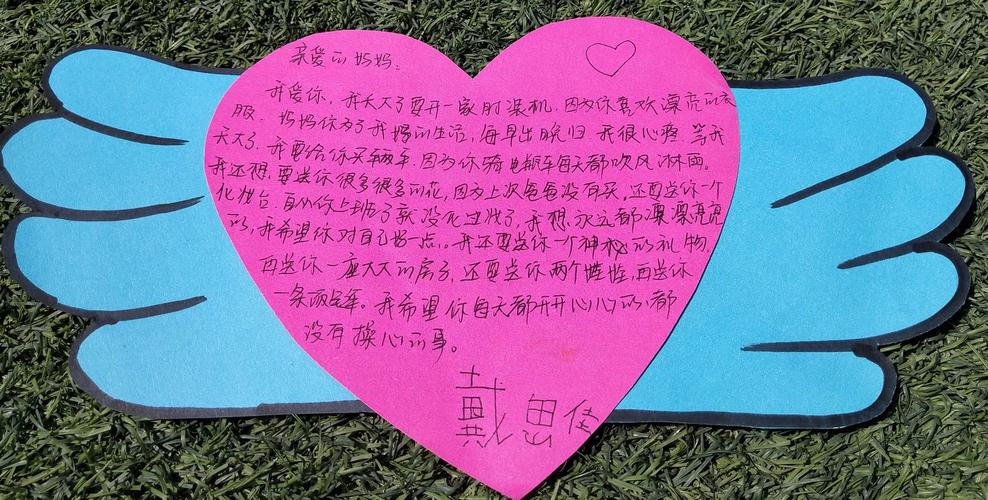 亲爱的妈妈:
我爱你,我长大了要开一家时装机,因为你喜欢漂亮的衣
服。妈妈你为了我们的生活,每早出晚归我很心疼,等我
长大了,我要给你买辆车,因为你骑电瓶车每天都吹风淋雨。
我还想,要送你很多很多的花,因为上次爸爸没有买,还要送你一个
化妆台,自从你上班了就没化过妆了,我想永远都漂漂亮亮
的,我希望你对自己好一点。我还要送你一个神秘的礼物,
再送你一座大大的房子,还要送你两个,再送你
一条。我希望你每天都开开心心的都
没有操心的事。
戴思佳